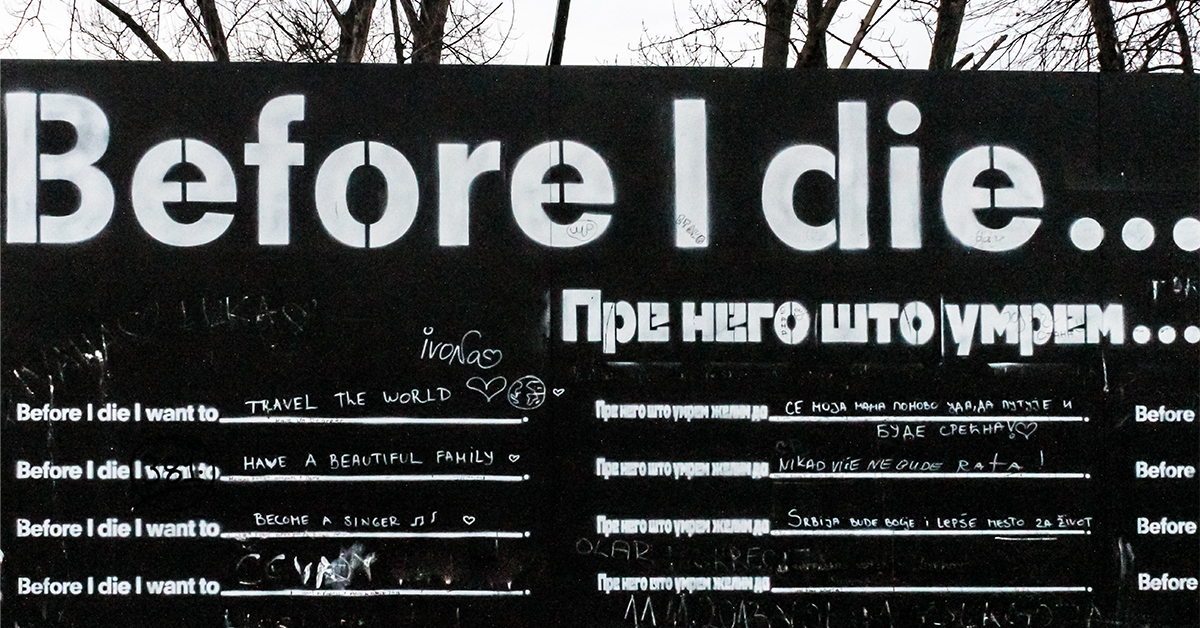 Before I die...
Пре него што умрем...
ivoNa
Before I die I want to TRAVEL THE WORLD.
Before I die I want to HAVE A BEAUTIFUL FAMILY.
Before I die I want to BECOME A SINGER.
Before I die I want to.
Пре него што умрем желим да СЕ МОЈА МАМА ПОНОВО УДА, ДА ПУТУЈЕ И.
БУДЕ СРЕЋНА!
Пре него што умрем желим да NIKAD VIŠE NE BUDE RATA!.
Пре него што умрем желим да SRBIJA BUDE BOLJE I LEPŠE MESTO ZA ŽIVOT.
Пре него што умрем желим да.
Before
Before
Before
Before